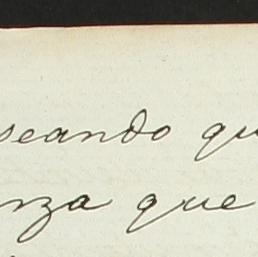 seando qu
nza que